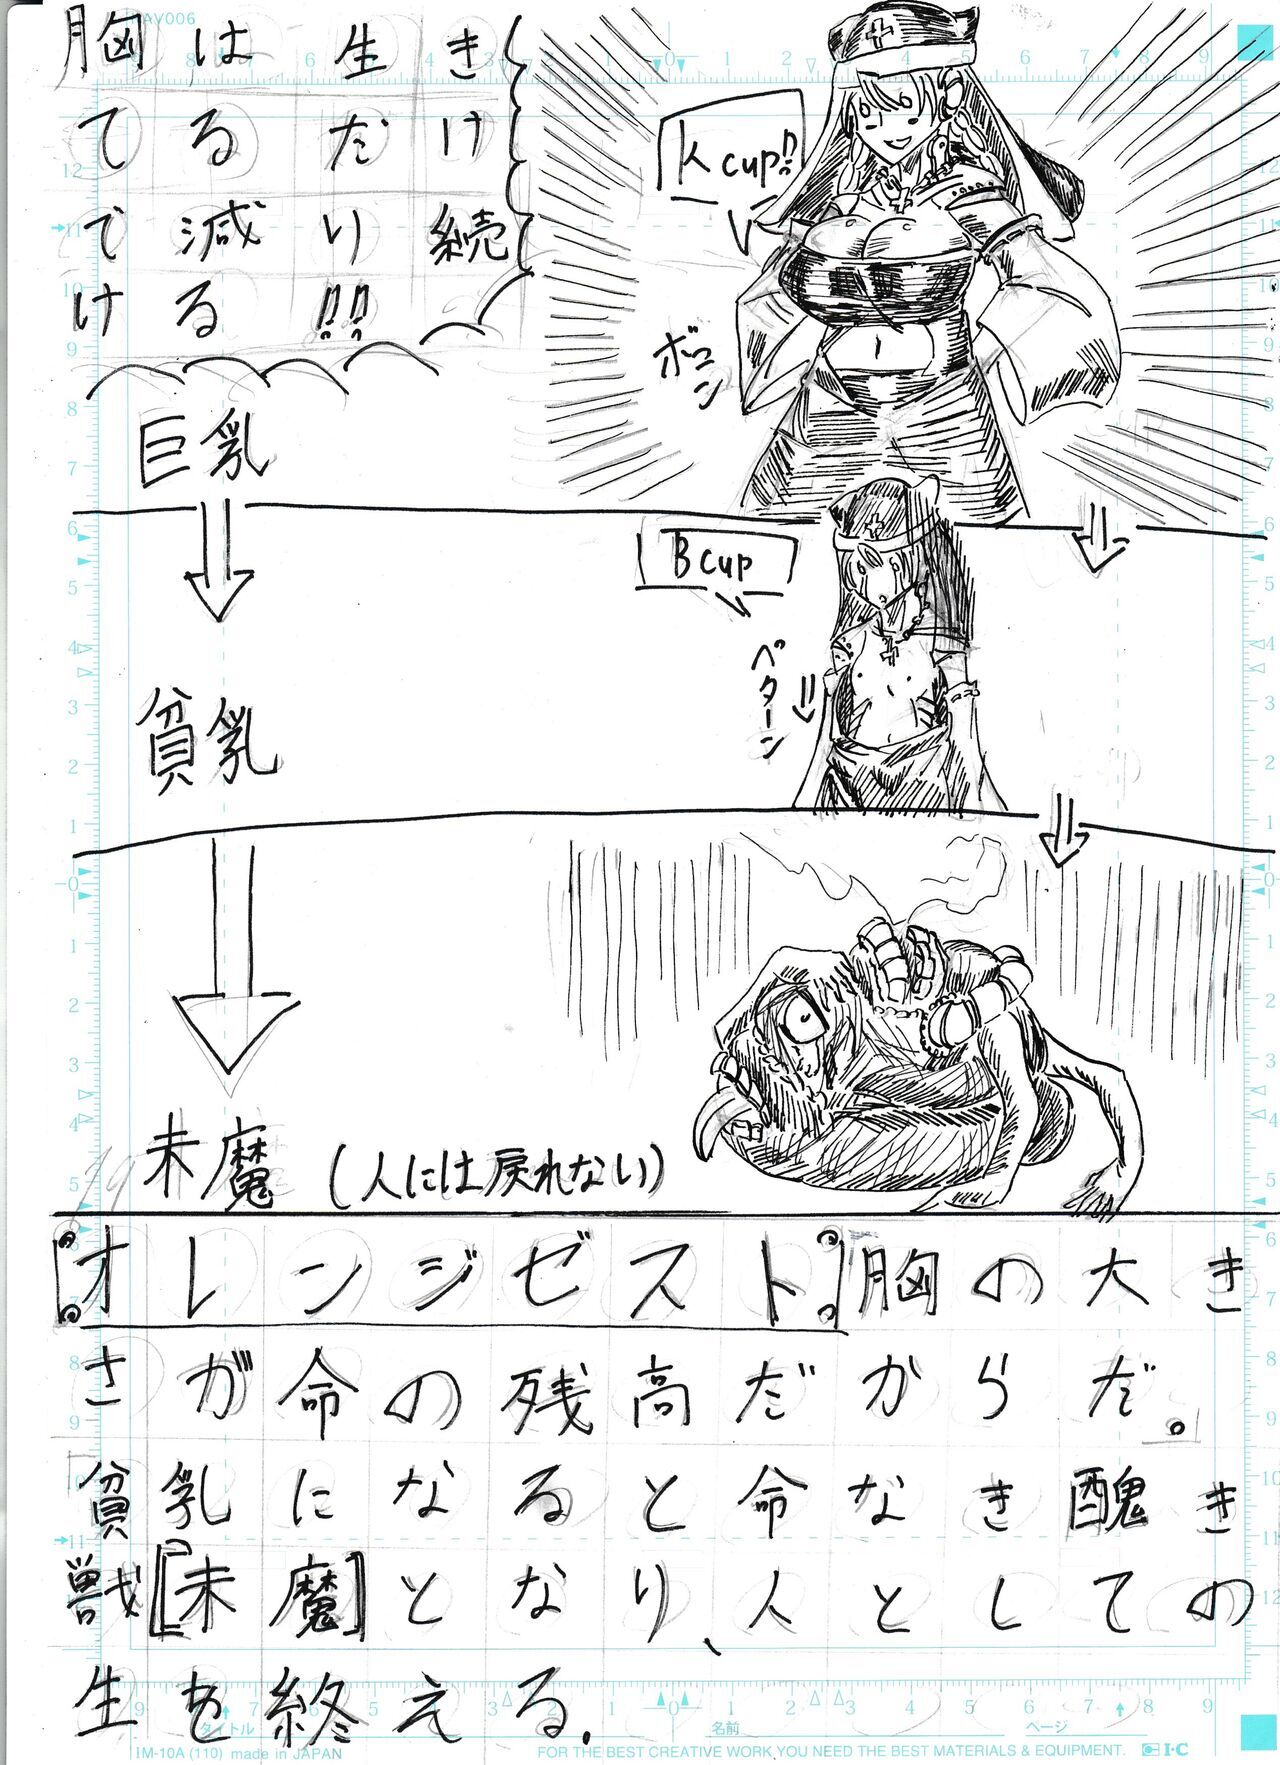 胸は生き
てるだけ
で減り続
ける!!
K cup!!
ボイン
巨乳
B cup
ペターン
貧乳
未魔 (人には戻れない)
『オレンジゼスト』胸の大き
さが命の残高だからだ。
貧乳になると命なき醜き
獣[未魔]となり、人としての
生を終える.
タイトル
名前
ページ
IM-10A (110) made in JAPAN
FOR THE BEST CREATIVE WORK, YOU NEED THE BEST MATERIALS & EQUIPMENT.
I·C